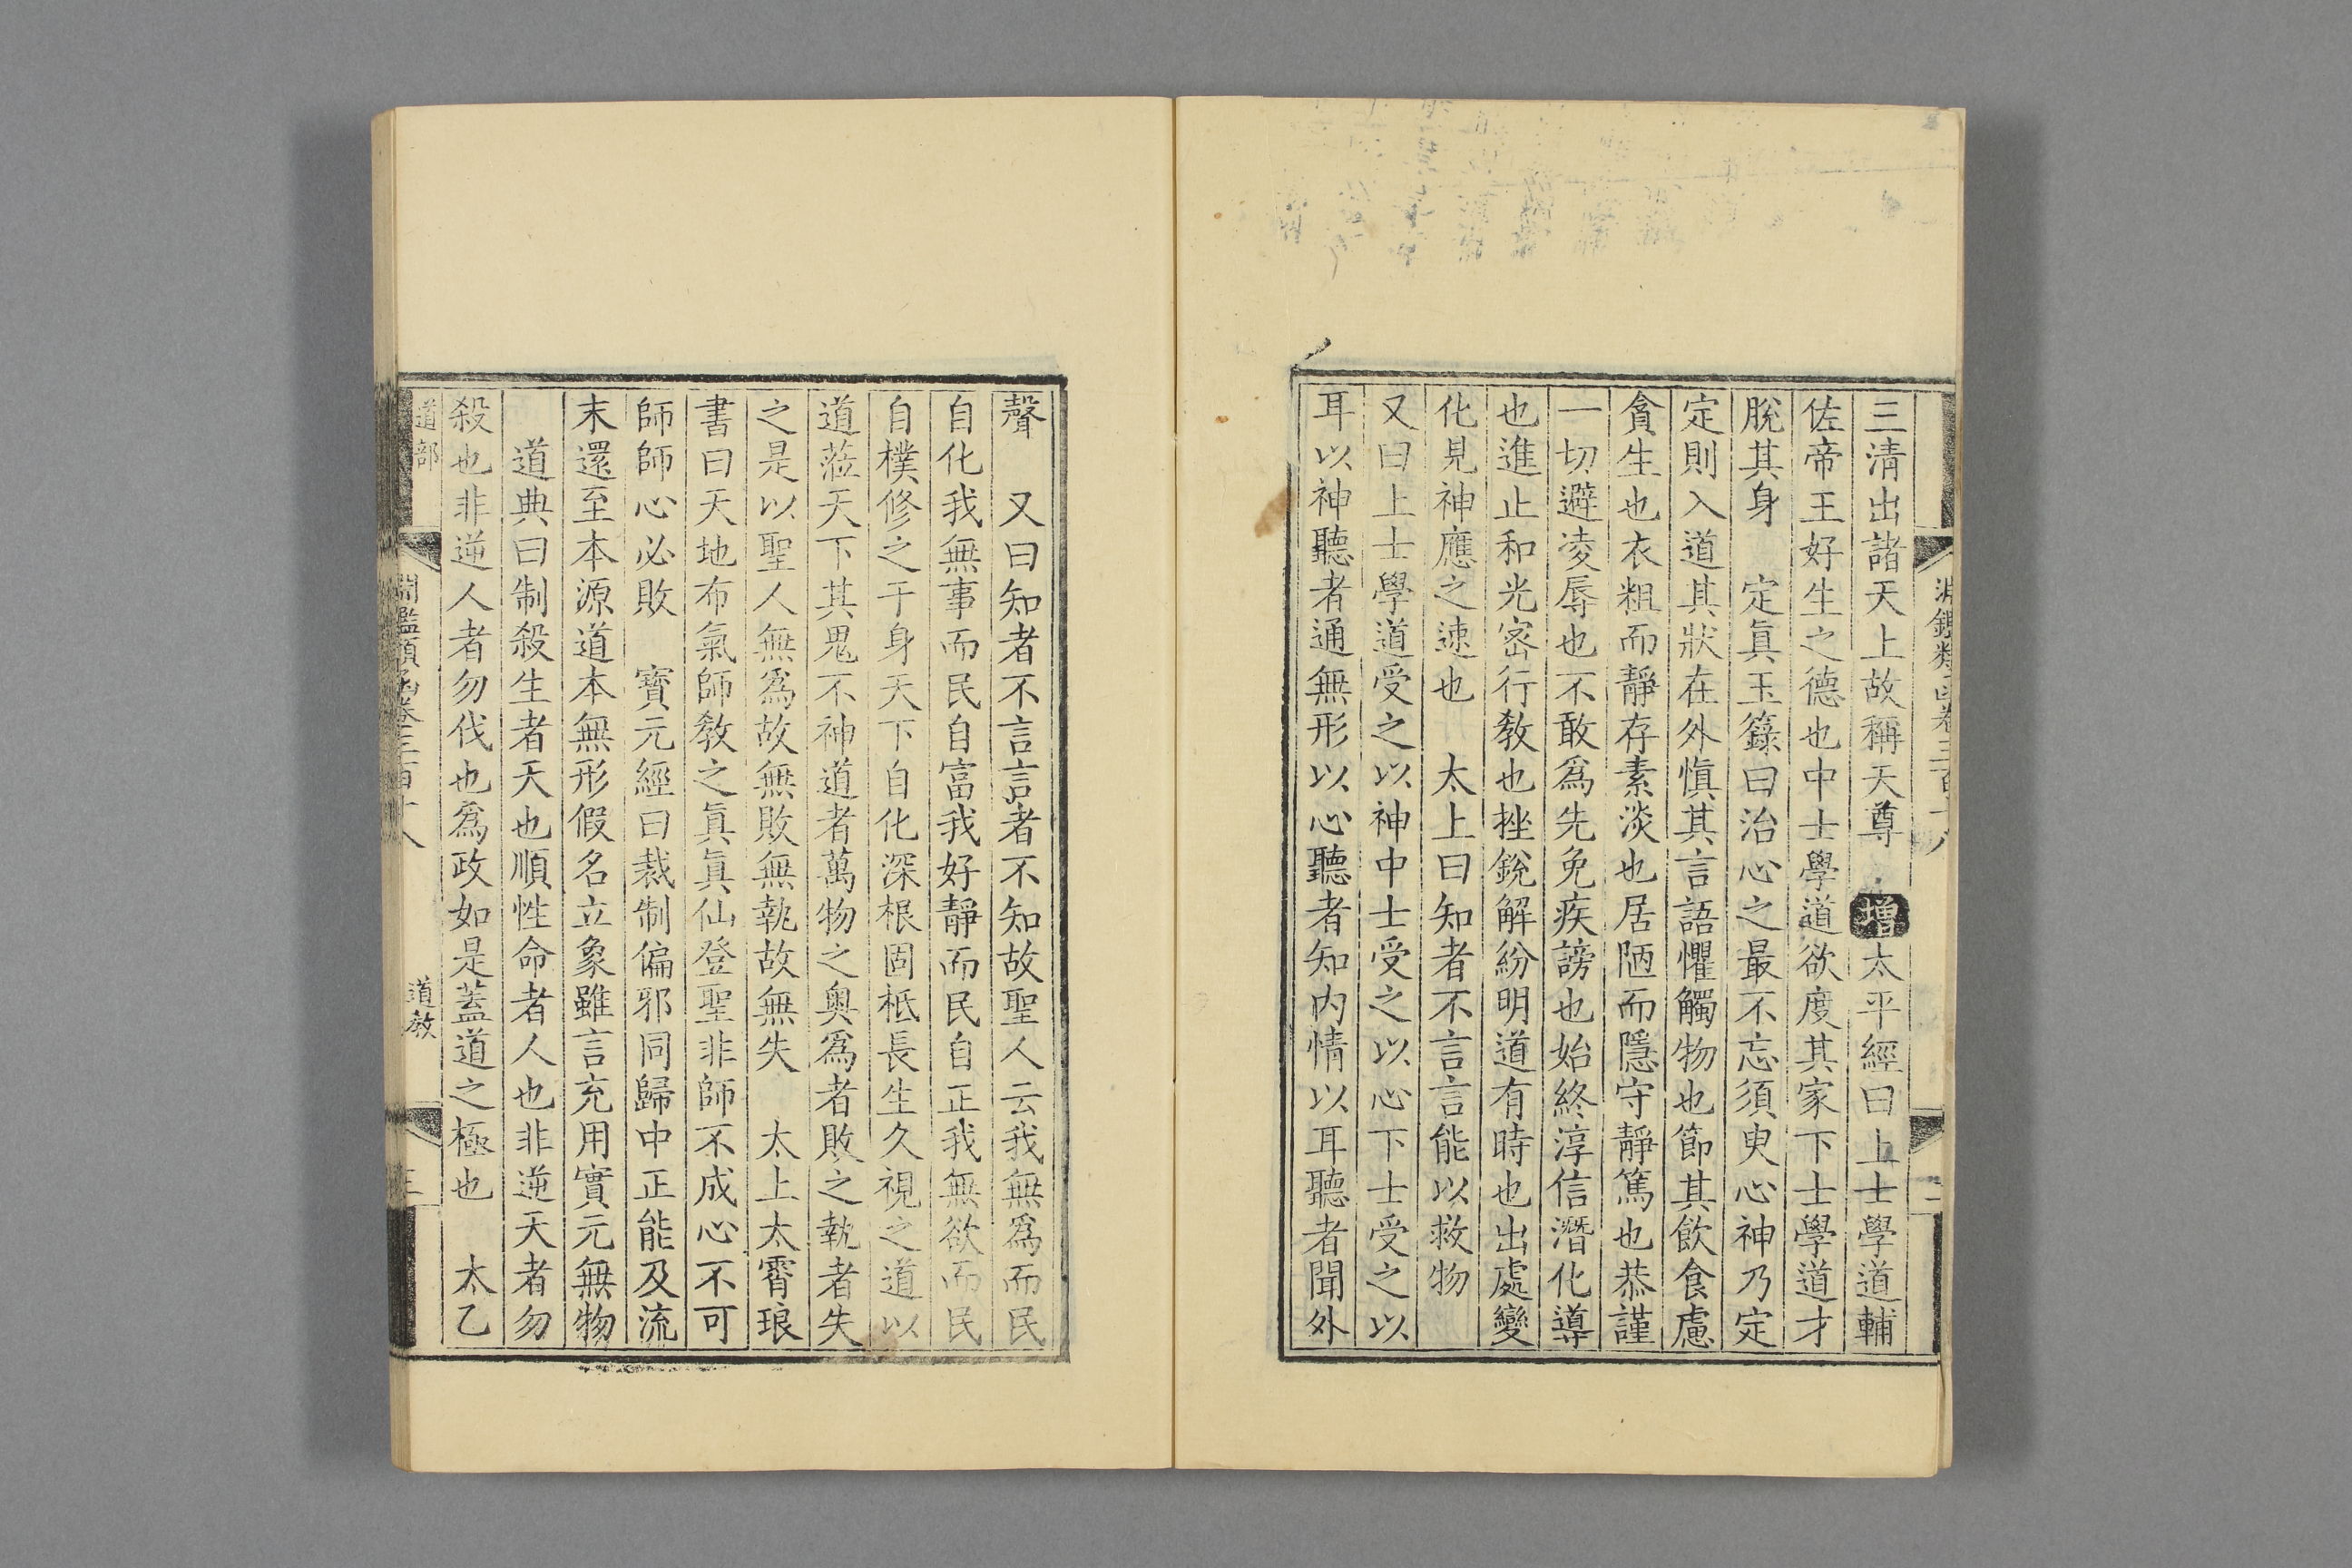 三清出諸天上故稱天尊 增太平經曰上士學道輔
佐帝王好生之德也中士學道欲度其家下士學道才
脫其身 定眞玉籙曰治心之最不忘須臾心神乃定
定則入道其狀在外愼其言語懼觸物也節其飲食慮
貪生也衣粗而靜存素淡也居陋而隱守靜篤也恭謹
一切避凌辱也不敢爲先免疾謗也始終淳信潛化導
也進止和光密行敎也挫銳解紛明道有時也出處變
化見神應之速也 太上曰知者不言言能以救物
又曰上士學道受之以神中士受之以心下士受之以
耳以神聽者通無形以心聽者知內情以耳聽者聞外
聲 又曰知者不言言者不知故聖人云我無爲而民
自化我無事而民自富我好靜而民自正我無欲而民
自樸修之于身天下自化深根固柢長生久視之道以
道蒞天下其鬼不神道者萬物之奧爲者敗之執者失
之是以聖人無爲故無敗無執故無失 太上太霄琅
書曰天地布氣師敎之眞眞仙登聖非師不成心不可
師師心必敗 寶元經曰裁制偏邪同歸中正能及流
末還至本源道本無形假名立象雖言充用實元無物
道典曰制殺生者天也順性命者人也非逆天者勿
殺也非逆人者勿伐也爲政如是蓋道之極也 太乙
道部 淵鑑類函卷三百十八 道敎 三